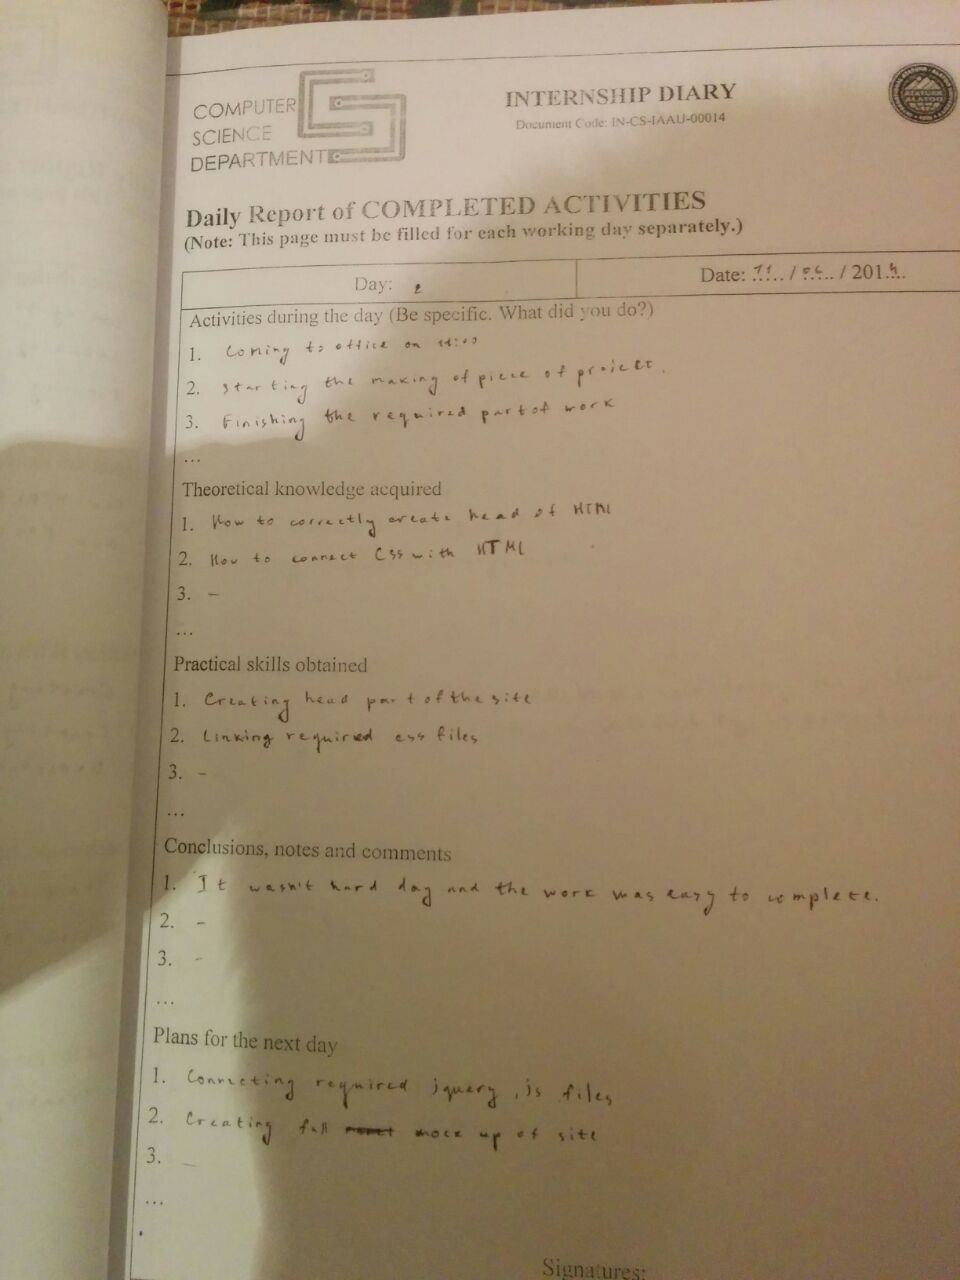 COMPUTER
SCIENCE
DEPARTMENT
INTERNSHIP DIARY
Document Code: IN-CS-IAAU-00014
Daily Report of COMPLETED ACTIVITIES
(Note: This page must be filled for each working day separately.)
Day: 2
Date: 11 / 06 / 2014.
Activities during the day (Be specific. What did you do?)
1. Coming to office on
2. Starting the making of piece of project.
3. Finishing the required part of work
...
Theoretical knowledge acquired
1. How to correctly create head of HTML
2. How to connect CSS with HTML
3. -
...
Practical skills obtained
1. Creating head part of the site
2. Linking required css files
3. -
...
Conclusions, notes and comments
1. It wasn't hard day and the work was easy to complete.
2. -
3. -
...
Plans for the next day
1. Connecting required jquery, js files
2. Creating full mock up of site
3. -
...
Signatures: